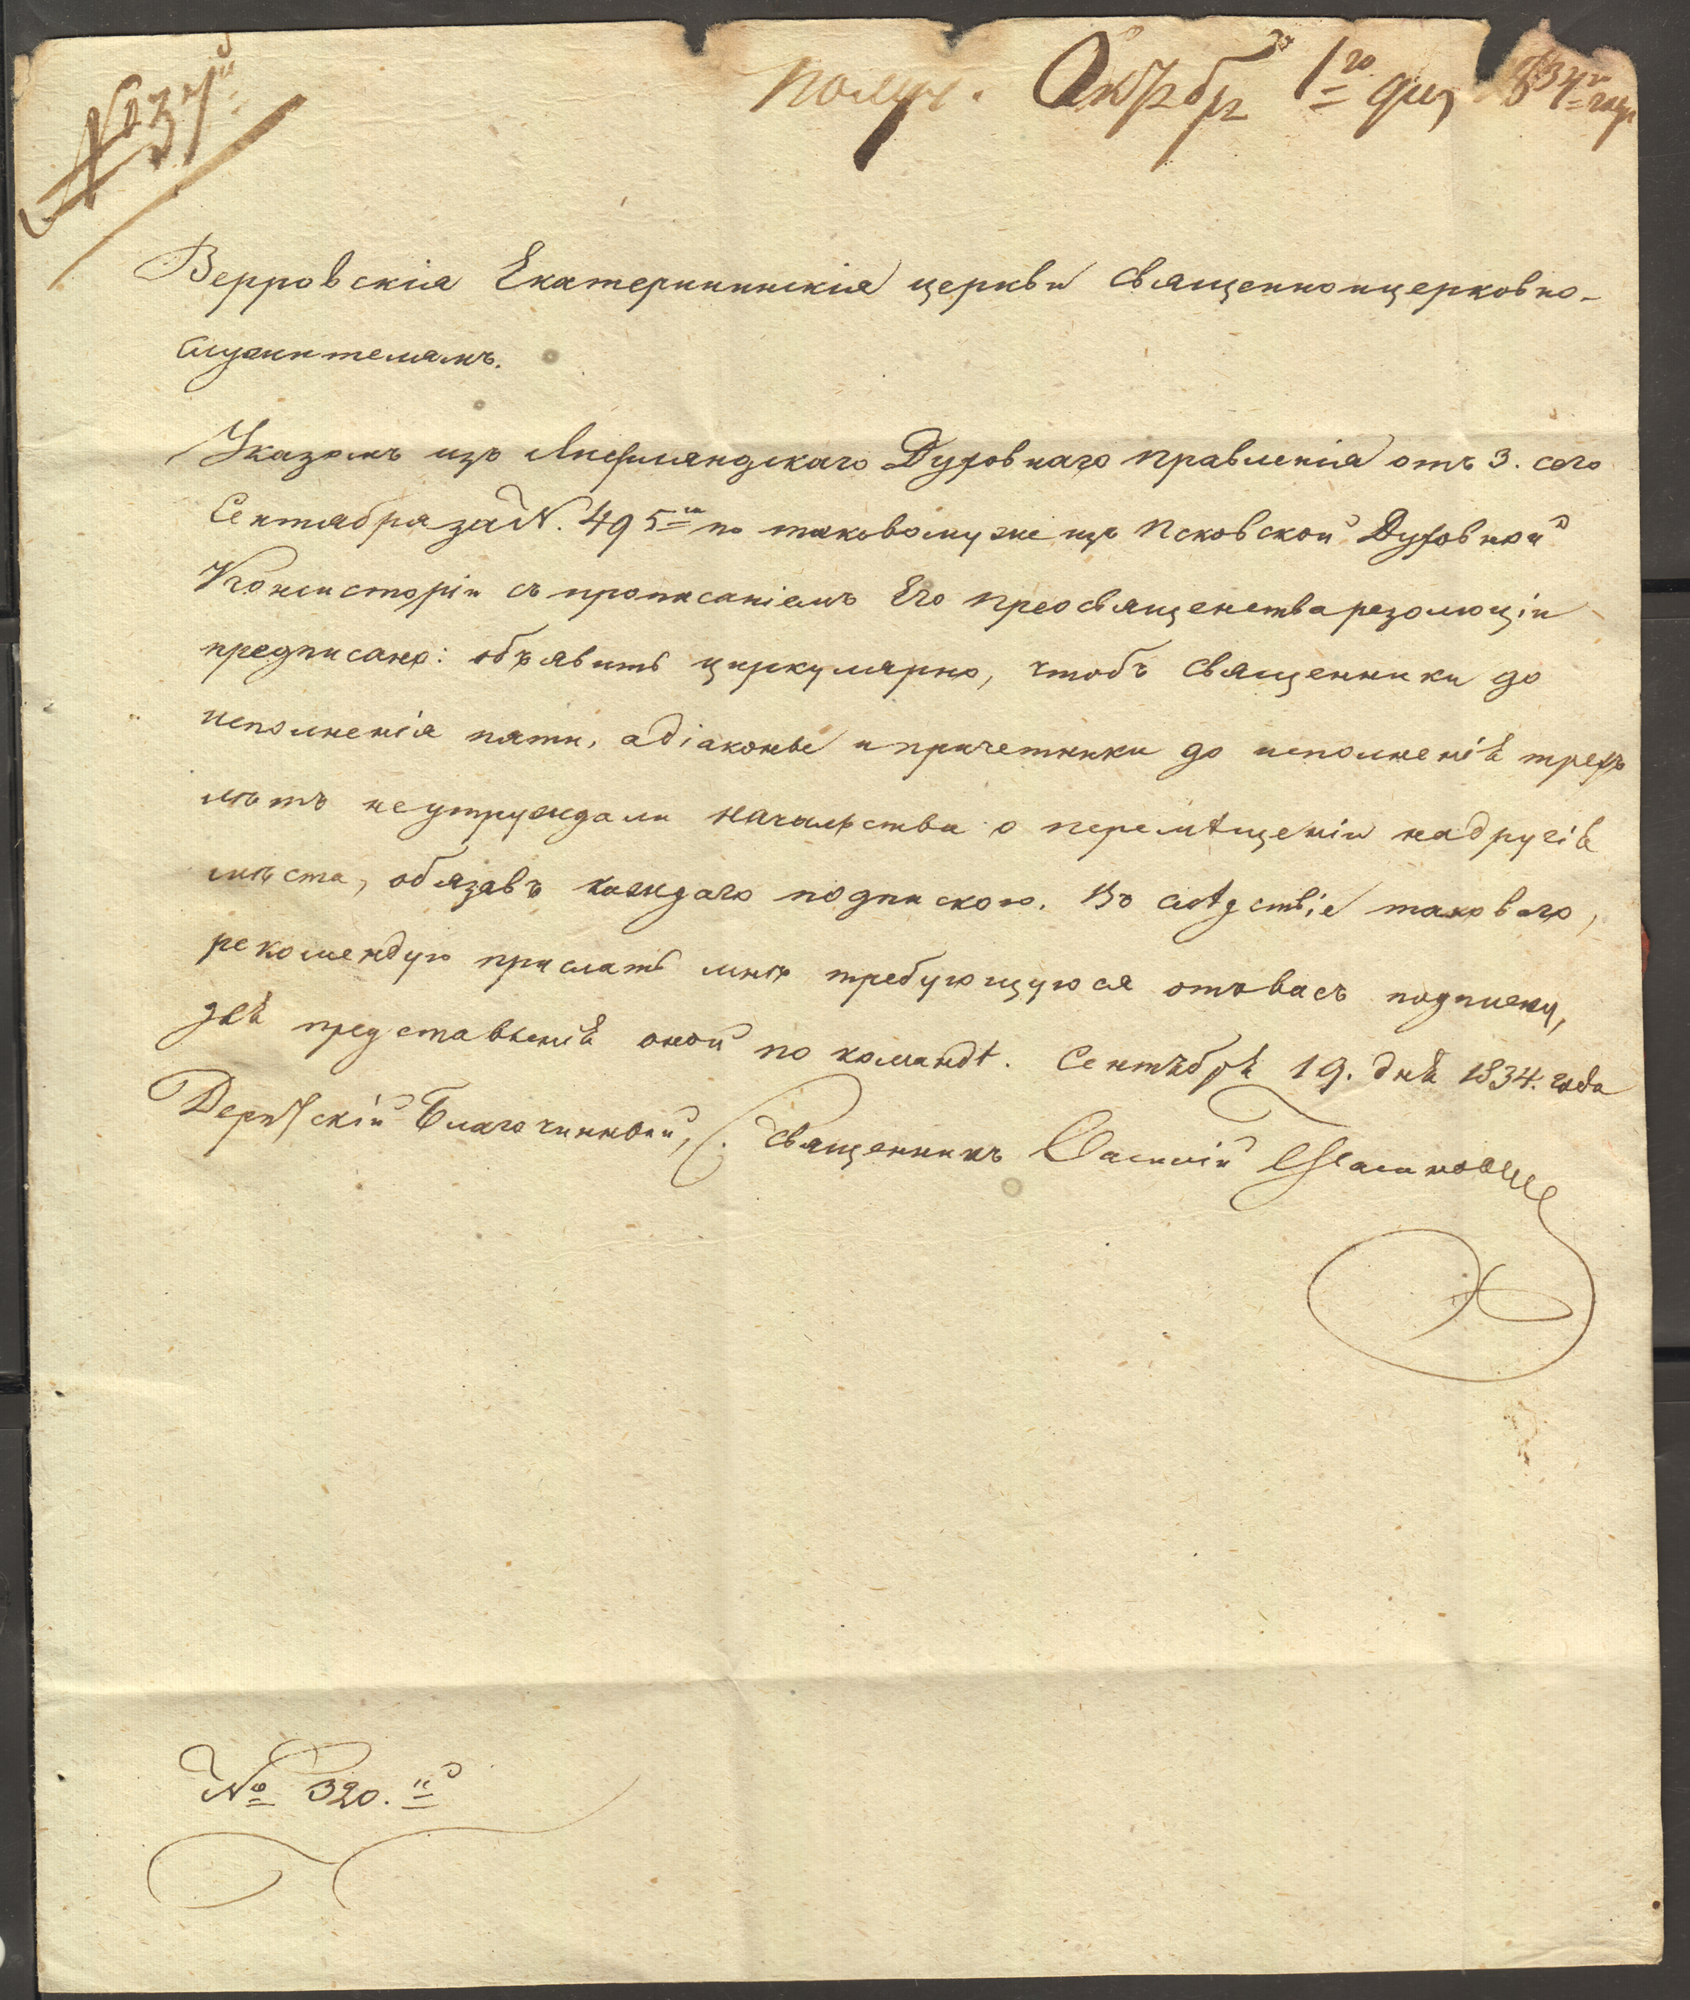 № 37й
Получ. Октября 1го дня 834го года
Верровскія Екатерининскія церкви священноицерковно-
служителямъ.
Указомъ изъ Лифляндскаго Духовнаго Правленія отъ 3. сего
Сентября за N. 495м по таковому же изъ Псковской Духовной
Консисторіи съ прописаніемъ Его Преосвященства резолюціи
предписано: объявить циркулярно, чтобъ священники до
исполненія пяти, а діаконы и причетники до исполненія трехъ
лѣтъ неутруждали начальства о перемѣщеніи на другія
мѣста, обязавъ каждаго подпискою. Во слѣдствіе таковаго,
рекомендую прислать мнѣ требующуюся отъ васъ подписку,
для представленія оной по командѣ. Сентября 19. дня 1834. года
Дерптскій Благочинный, Священникъ Василій
№ 320.й